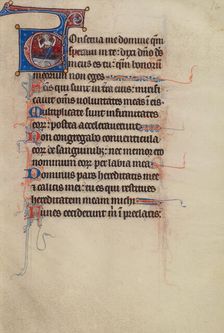 Onserva me domine qm̄
speravi in te: dixi dño de
meus es tu: qm̄ bonorū
meorum non eges
Sanctis qui sunt in terra eius: mirifi
cavit omēs voluntates meas ī eis
Multiplicate sunt infirmitates
eor: postea acceleraverunt
Non congregabo conventicula
eor de sanguinib: nec memor ero
nominum eor per labia mea
Dominus pars hereditatis mee
et calicis mei: tu es qui restitues
hereditatem meam michi
Funes ceciderunt m̄ i preclaris: